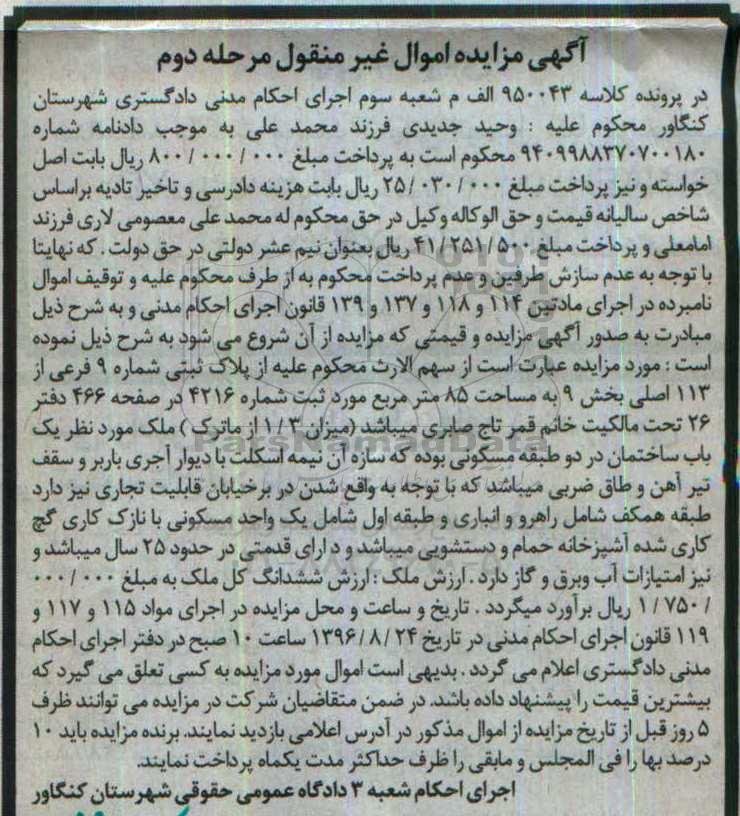 آگهی مزایده اموال غیر منقول مرحله دوم
در پرونده کلاسه ۹۵۰۰۴۳ الف م شعبه سوم اجرای احکام مدنی دادگستری شهرستان
کنگاور محکوم علیه : وحید جدیدی فرزند محمد علی به موجب دادنامه شماره
۹۴۰۹۹۸۸۳۷۰۷۰۰۱۸۰ محکوم است به پرداخت مبلغ ۸۰۰/۰۰۰/۰۰۰ ریال بابت اصل
خواسته و نیز پرداخت مبلغ ۲۵/۰۳۰/۰۰۰ ریال بابت هزینه دادرسی و تاخیر تادیه براساس
شاخص سالیانه قیمت و حق الوکاله وکیل در حق محکوم له محمد علی معصومی لاری فرزند
امامعلی و پرداخت مبلغ ۴۱/۲۵۱/۵۰۰ ریال بعنوان نیم عشر دولتی در حق دولت . که نهایتا
با توجه به عدم سازش طرفین و عدم پرداخت محکوم به از طرف محکوم علیه و توقیف اموال
نامبرده در اجرای مادتین ۱۱۴ و ۱۱۸ و ۱۳۷ و ۱۳۹ قانون اجرای احکام مدنی و به شرح ذیل
مبادرت به صدور آگهی مزایده و قیمتی که مزایده از آن شروع می شود به شرح ذیل نموده
است : مورد مزایده عبارت است از سهم الارث محکوم علیه از پلاک ثبتی شماره ۹ فرعی از
۱۱۳ اصلی بخش ۹ به مساحت ۸۵ متر مربع مورد ثبت شماره ۴۲۱۶ در صفحه ۴۶۶ دفتر
۲۶ تحت مالکیت خانم قمر تاج صابری میباشد (میزان ۱/۳ از ماترک) ملک مورد نظر یک
باب ساختمان در دو طبقه مسکونی بوده که سازه آن نیمه اسکلت با دیوار آجری باربر و سقف
تیر آهن و طاق ضربی میباشد که با توجه به واقع شدن در بر خیابان قابلیت تجاری نیز دارد
طبقه همکف شامل راهرو و انباری و طبقه اول شامل یک واحد مسکونی با نازک کاری گچ
کاری شده آشپزخانه حمام و دستشویی میباشد و دارای قدمتی در حدود ۲۵ سال میباشد و
نیز امتیازات آب وبرق و گاز دارد . ارزش ملک : ارزش ششدانگ کل ملک به مبلغ ۰۰۰/۰۰۰
/۱/۷۵۰ ریال برآورد میگردد . تاریخ و ساعت و محل مزایده در اجرای مواد ۱۱۵ و ۱۱۷ و
۱۱۹ قانون اجرای احکام مدنی در تاریخ ۱۳۹۶/۸/۲۴ ساعت ۱۰ صبح در دفتر اجرای احکام
مدنی دادگستری اعلام می گردد . بدیهی است اموال مورد مزایده به کسی تعلق می گیرد که
بیشترین قیمت را پیشنهاد داده باشد. در ضمن متقاضیان شرکت در مزایده می توانند ظرف
۵ روز قبل از تاریخ مزایده از اموال مذکور در آدرس اعلامی بازدید نمایند. برنده مزایده باید ۱۰
درصد بها را فی المجلس و مابقی را ظرف حداکثر مدت یکماه پرداخت نمایند.
اجرای احکام شعبه ۳ دادگاه عمومی حقوقی شهرستان کنگاور
ParsNamadData